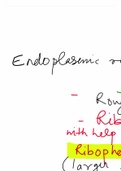 Endoplasmic
- Rou
- Rib
with help
Ribopho
(larger